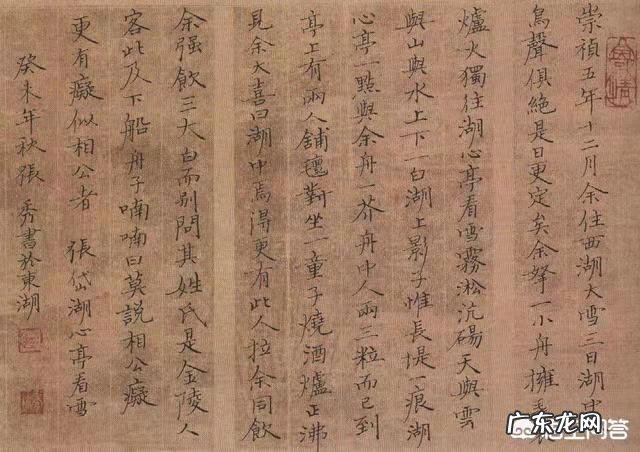 崇禎五年十二月余住西湖大雪三日湖中
鳥聲俱絕是日更定矣余拏一小舟擁毳衣
爐火獨往湖心亭看雪霧淞沆碭天與雲
與山與水上下一白湖上影子惟長堤一痕湖
心亭一點與余舟一芥舟中人兩三粒而已到
亭上有兩人鋪氈對坐一童子燒酒爐正沸
見余大喜曰湖中焉得更有此人拉余同飲
余强飲三大白而別問其姓氏是金陵人
客此及下船舟子喃喃曰莫說相公癡
更有癡似相公者 張岱湖心亭看雪
癸未年秋張秀書於東湖
广东龙网
问答